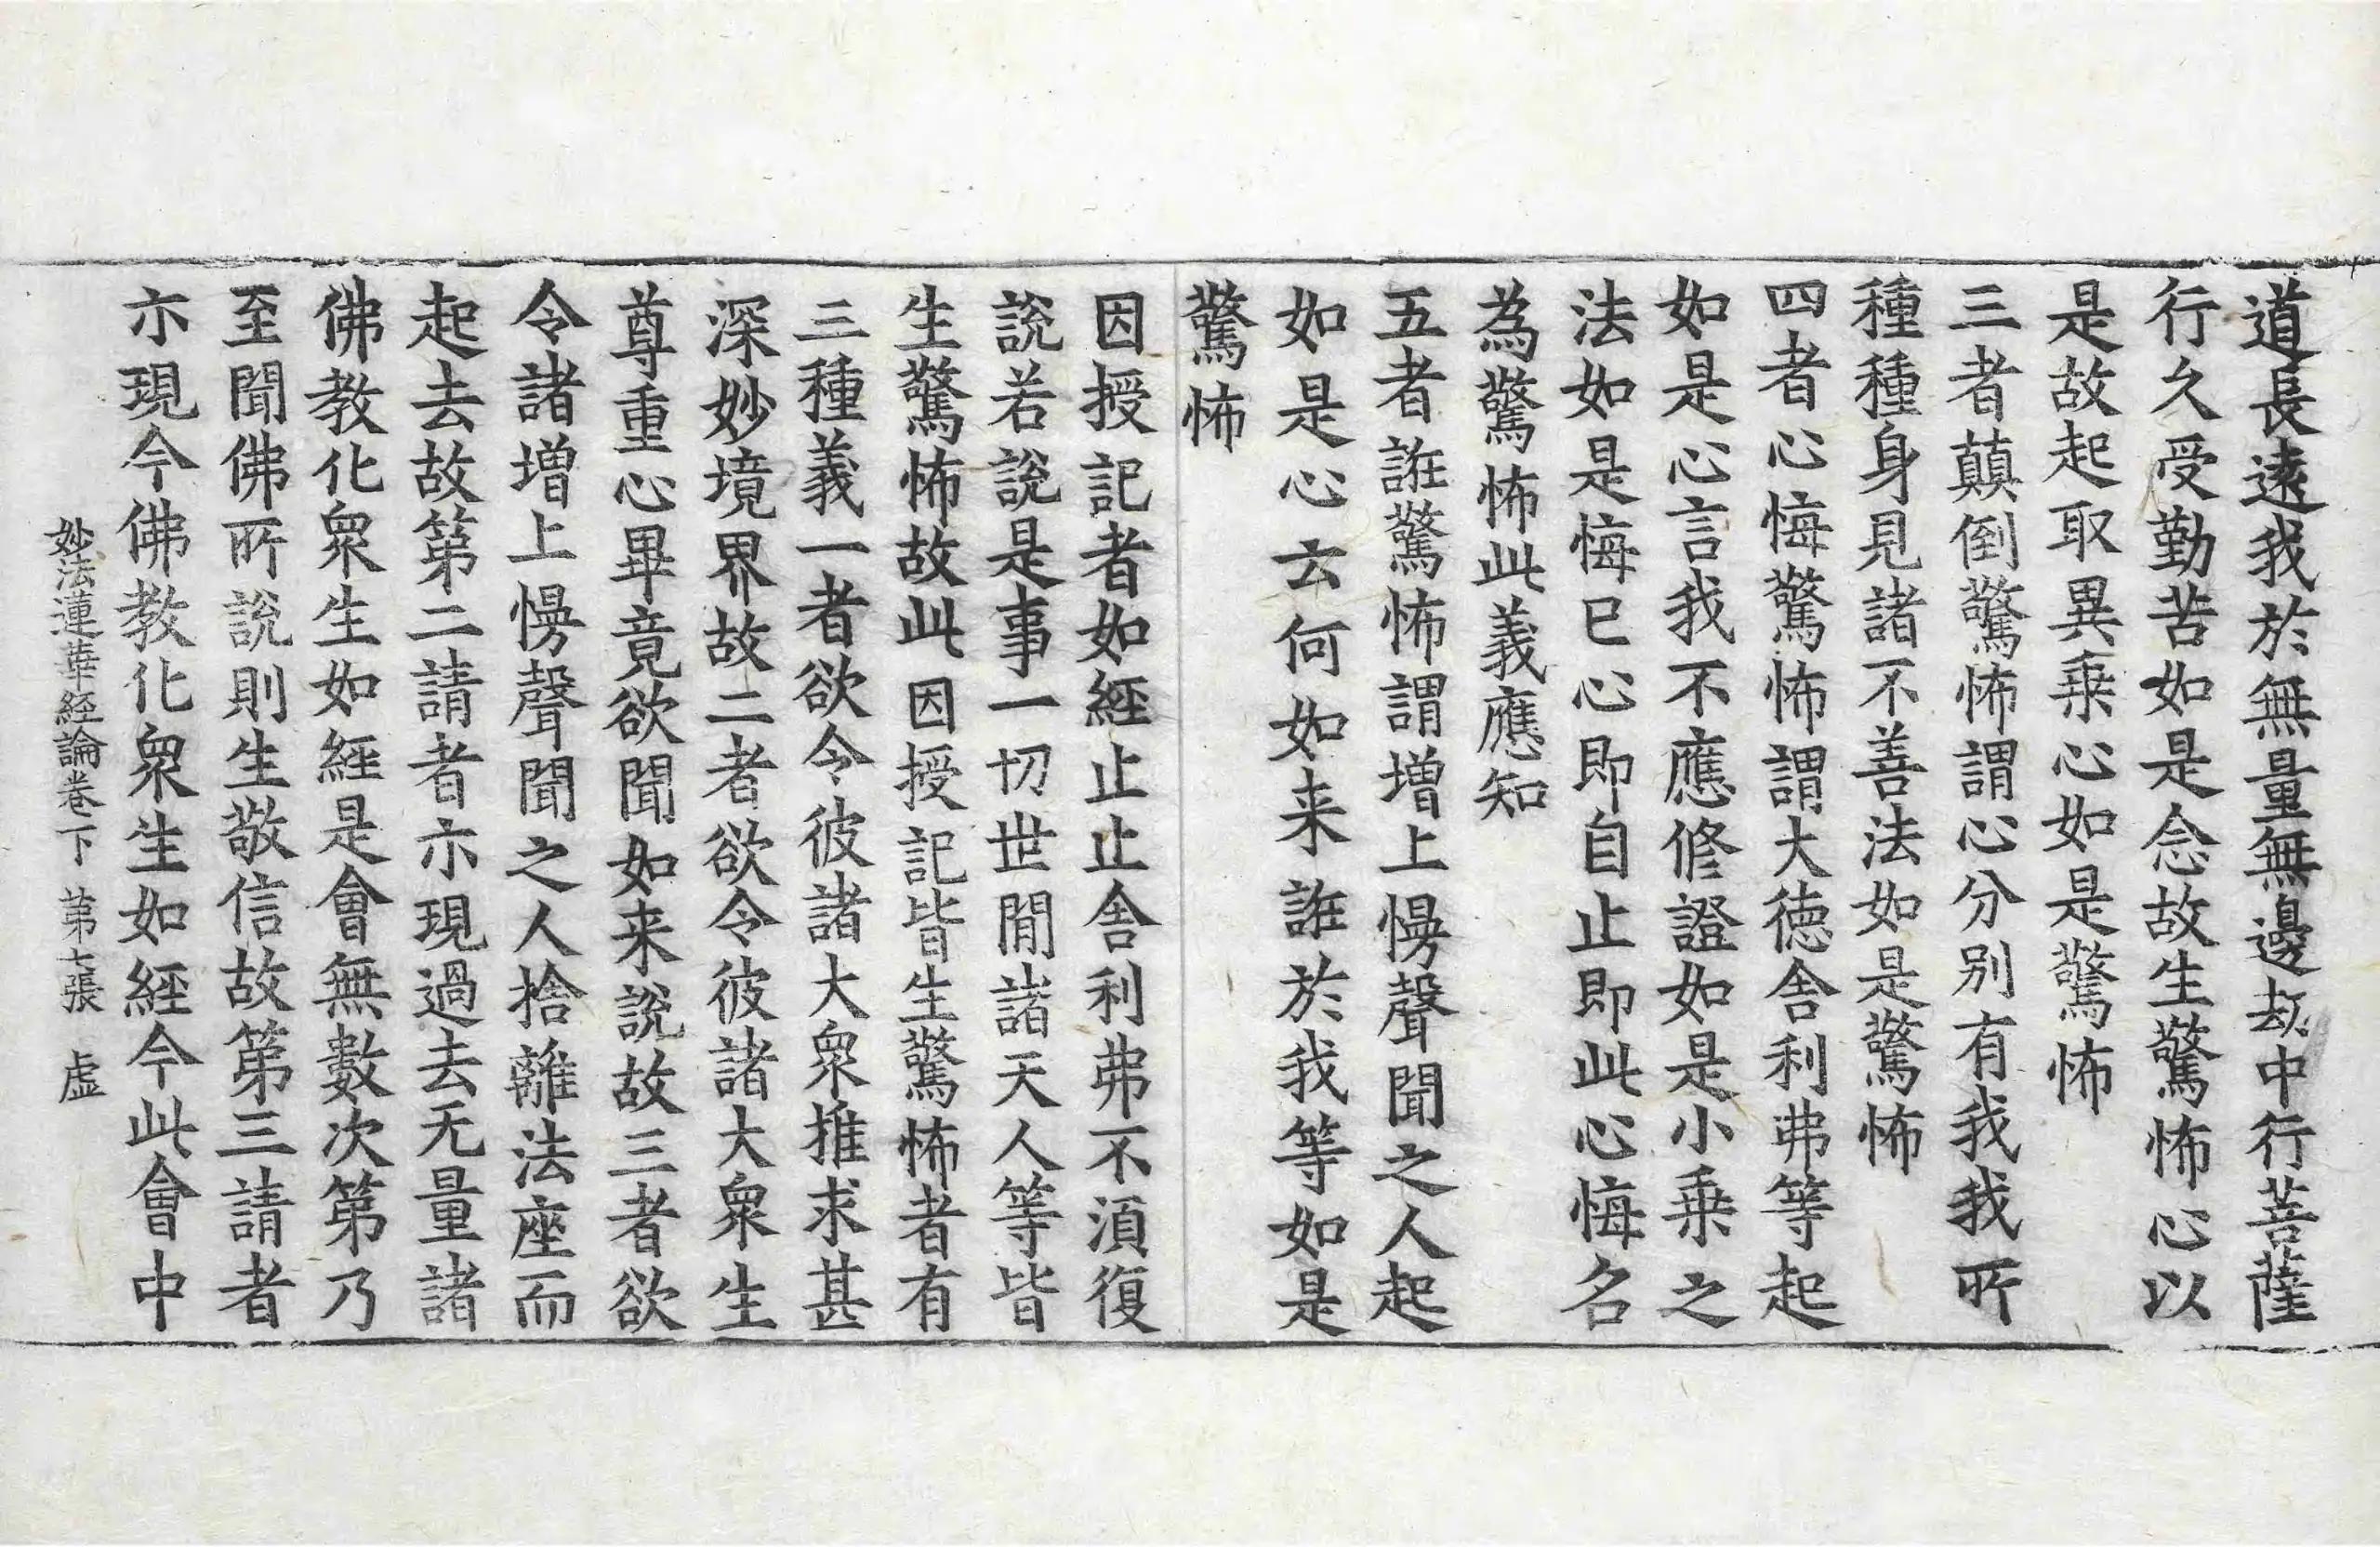 道長遠我於無量無邊劫中行菩薩
行久受勤苦如是念故生驚怖心以
是故起取異乗心如是驚怖
三者顛倒驚怖謂心分別有我我所
種種身見諸不善法如是驚怖
四者心悔驚怖謂大德舍利弗等起
如是心言我不應修證如是小乗之
法如是悔已心即自止即此心悔名
為驚怖此義應知
五者誑驚怖謂増上慢聲聞之人起
如是心云何如来誑於我等如是
驚怖
因授記者如經止止舍利弗不湏復
說若說是事一切世間諸天人等皆
生驚怖故此因授記皆生驚怖者有
三種義一者欲令彼諸大衆推求甚
深妙境界故二者欲令彼諸大衆生
尊重心畢竟欲聞如来說故三者欲
令諸増上慢聲聞之人捨離法座而
起去故第二請者亦現過去无量諸
佛教化衆生如經是會無數次第乃
至聞佛所說則生敬信故第三請者
亦現今佛教化衆生如經今此會中
妙法蓮華經論卷下 第七張 虛